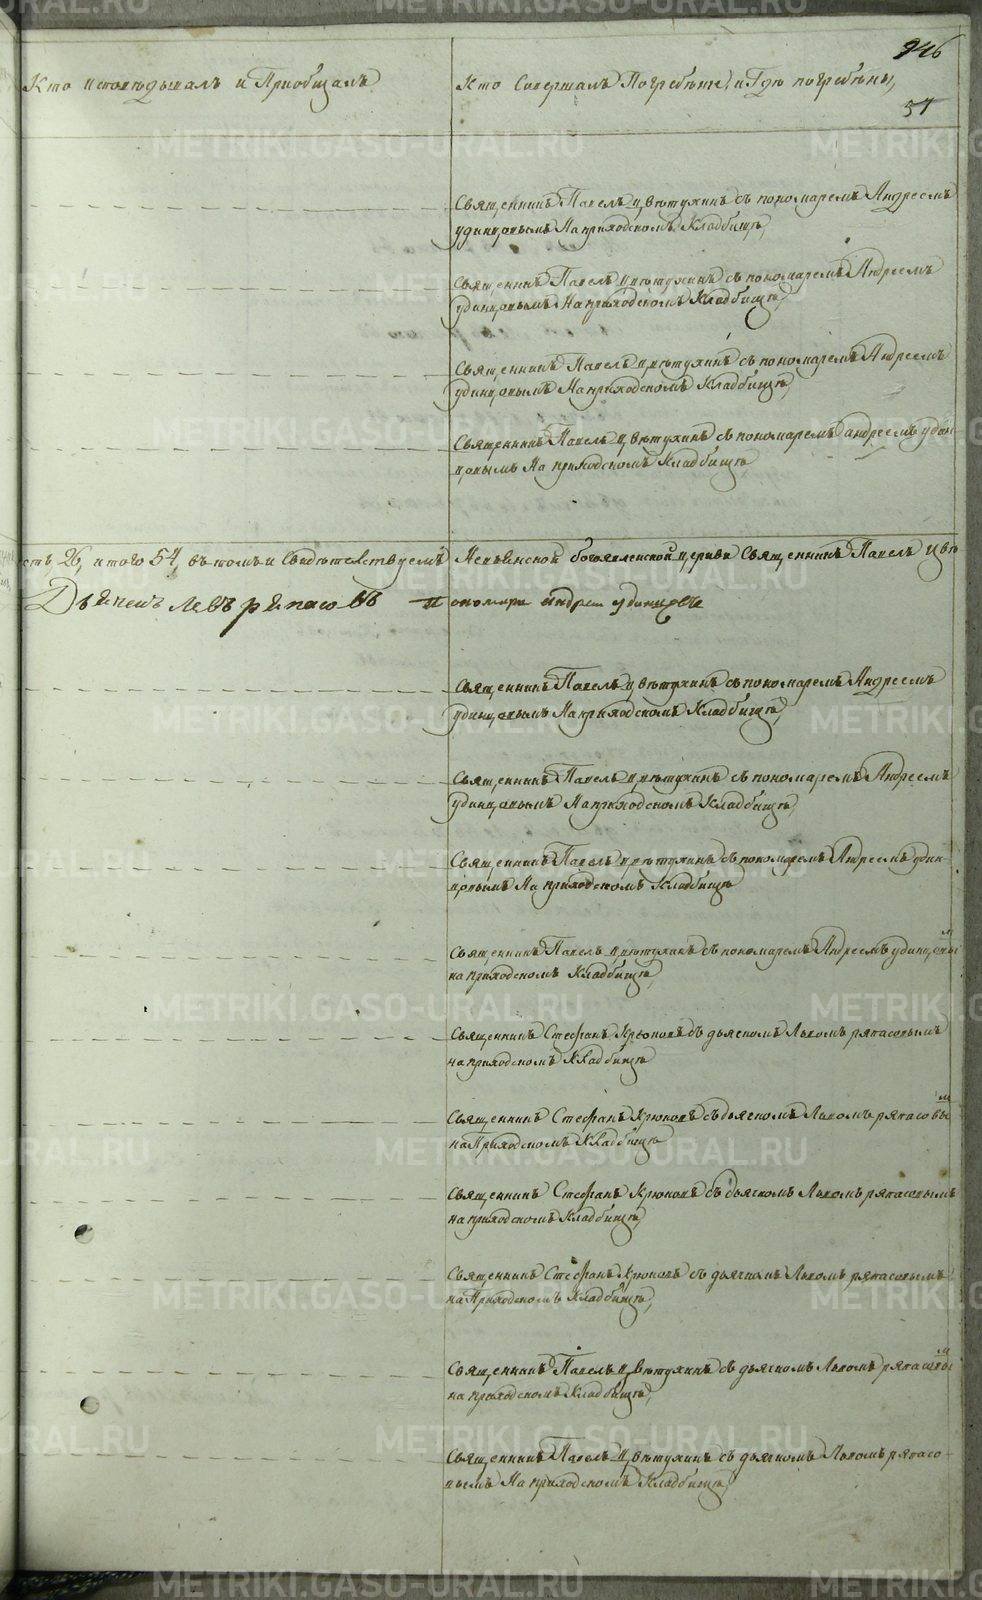 946
Кто исповѣдывалъ и Приобщалъ
Кто Совершалъ Погребѣние, и Гдѣ погребѣны,
51
Священникъ Павелъ Цвѣтухинъ съ пономаремъ Андреемъ
удинцовымъ На приходскомъ Кладбищѣ,
Священникъ Павелъ Цвѣтухинъ съ пономаремъ Андреемъ
удинцовымъ На приходскомъ Кладбищѣ,
Священникъ Павелъ Цвѣтухинъ съ пономаремъ Андреемъ
удинцовымъ На приходскомъ Кладбищѣ,
Священникъ Павелъ Цвѣтухинъ съ пономаремъ андреемъ удин
цовымъ На приходскомъ Кладбищѣ
26, итого 54, въ томъ и Свидѣтелствуемъ Невьянской богоявленской церкви Священникъ Павелъ Цвѣ
Дьячекъ Левъ ряпасовъ пономарь андрей удинцовъ
Священникъ Павелъ Цвѣтухинъ съ пономаремъ Андреемъ
удинцовымъ На приходскомъ Кладбищѣ,
Священникъ Павелъ Цвѣтухинъ съ пономаремъ Андреемъ
удинцовымъ На приходскомъ Кладбищѣ,
Священникъ Павелъ Цвѣтухинъ съ пономаремъ Андреемъ удин
цовымъ На приходскомъ Кладбищѣ
Священникъ Павелъ Цвѣтухинъ съ пономаремъ Андреемъ удинцовым
на приходскомъ Кладбищѣ,
Священникъ Стефанъ Крюковъ съ дьячкомъ Львомъ ряпасовымъ
на приходскомъ Кладбищѣ
Священникъ Стефанъ Крюковъ съ дьячкомъ Львомъ ряпасовым
на Приходскомъ Кладбищѣ
Священникъ Стефанъ Крюковъ съ дьячкомъ Львомъ ряпасовымъ
на приходскомъ Кладбищѣ,
Священникъ Стефанъ Крюковъ съ дьячкомъ Львомъ ряпасовымъ
на Приходскомъ Кладбищѣ,
Священникъ Павелъ Цвѣтухинъ съ дьячкомъ Львомъ ряпасовым
на приходскомъ Кладбищѣ,
Священникъ Павелъ Цвѣтухинъ съ дьячкомъ Львомъ ряпасо
вымъ На приходскомъ Кладбищѣ,
METRIKI.GASO-URAL.RU